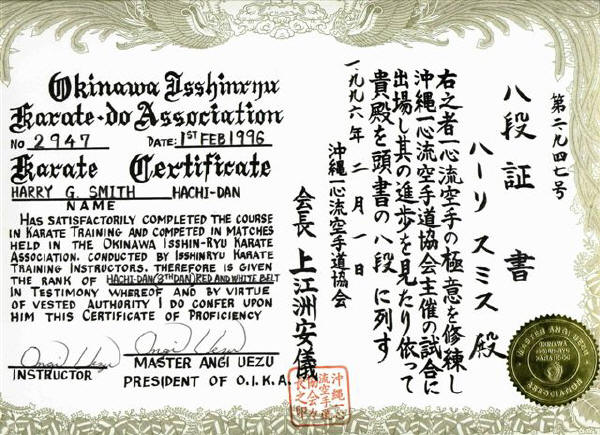 Okinawa Isshinryu
Karate-do Association
NO 2947 DATE: 1ST FEB 1996
Karate Certificate
HARRY G. SMITH HACHI-DAN
NAME
HAS SATISFACTORILY COMPLETED THE COURSE
IN KARATE TRAINING AND COMPETED IN MATCHES
HELD IN THE OKINAWA ISSHIN-RYU KARATE
ASSOCIATION. CONDUCTED BY ISSHINRYU KARATE
TRAINING INSTRUCTORS. THEREFORE IS GIVEN
THE RANK OF HACHI-DAN(8THDAN)RED AND WHITE BELT
IN TESTIMONY WHEREOF AND BY VIRTUE
OF VESTED AUTHORITY I DO CONFER UPON
HIM THIS CERTIFICATE OF PROFICIENCY
Angi Uezu Angi Uezu
INSTRUCTOR MASTER ANGI UEZU
PRESIDENT OF O.I.K.A.
第二九四七号
八段証書
ハーリ スミス 殿
右之者一心流空手の極意を修練し
沖縄一心流空手道協会主催の試合に
出場し其の進歩を見たり依って
貴殿を頭書の八段に列す
一九九六年 二月一日
沖縄一心流空手道協会
会長 上江洲安儀
沖縄一心
流空手道
協会々
長之印
MASTER ANGI UEZU
OKINAWA
ISSHIN-RYU
KARATE-DO